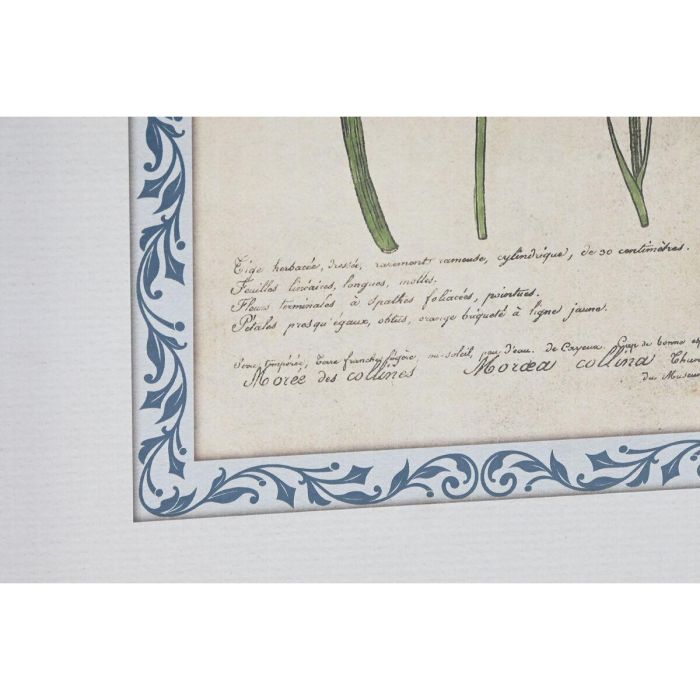 Tige herbacée, dressée, rarement rameuse, cylindrique, de 30 centimètres.
Feuilles linéaires, longues, molles.
Fleurs terminales à spathes foliacées, pointues.
Pétales presqu'égaux, obtus, orange briqueté à ligne jaune.
tempérée, Terre franche légère, mi-soleil, peu d'eau. de Cayeux. Cap de bonne
Morée des collines Moræa collina Thun
du Museum